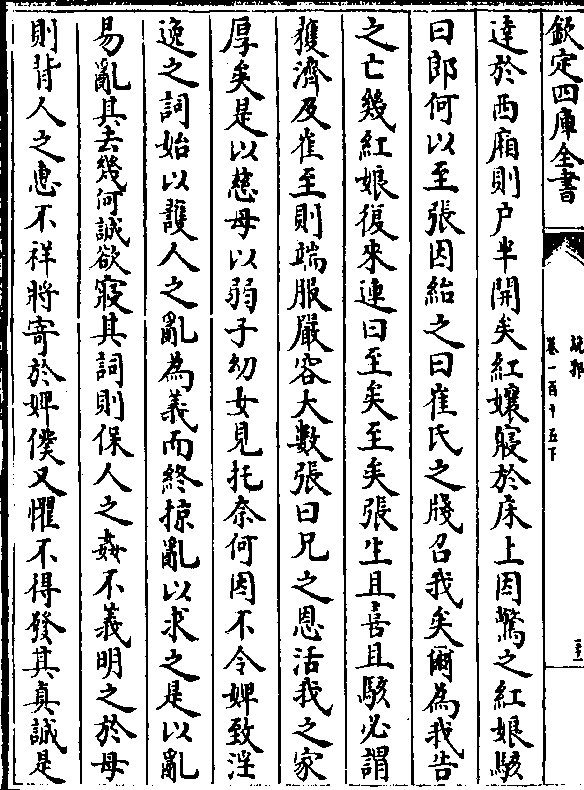 欽定四庫全書
說郛
卷一百十五下
達於西廂則户半開矣紅孃寢於床上因驚之紅娘駭
曰郎何以至張因紿之曰崔氏之牋召我矣爾為我告
之亡幾紅娘復來連曰至矣至矣張生且喜且駭必謂
獲濟及崔至則端服嚴容大數張曰兄之恩活我之家
厚矣是以慈母以弱子幼女見托奈何因不令婢致淫
逸之詞始以䕶人之亂為義而終掠亂以求之是以亂
易亂其去幾何誠欲寢其詞則保人之姦不義明之於母
則背人之惠不祥將寄於婢僕又懼不得發其真誠是